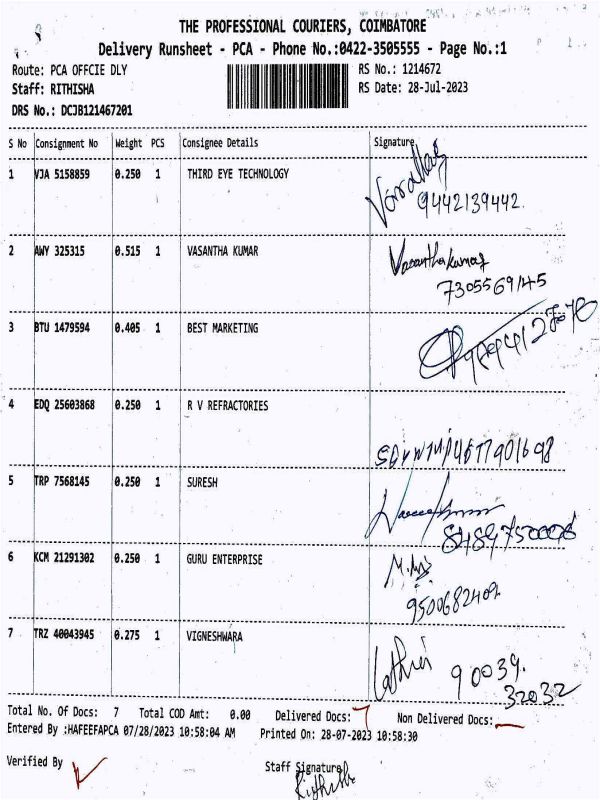 THE PROFESSIONAL COURIERS, COIMBATORE
Delivery Runsheet - PCA - Phone No.:0422-3505555 - Page No.:1
Route: PCA OFFCIE DLY RS No.: 1214672
Staff: RITHISHA RS Date: 28-Jul-2023
DRS No.: DCJB121467201
S No Consignment No Weight PCS Consignee Details Signature
1 VJA 5158859 0.250 1 THIRD EYE TECHNOLOGY
9442139442
2 AWY 325315 0.515 1 VASANTHA KUMAR Vasantha kumar
7305569145
3 BTU 1479594 0.405 1 BEST MARKETING
4 EDQ 25603868 0.250 1 R V REFRACTORIES
5 TRP 7568145 0.250 1 SURESH
6 KCM 21291302 0.250 1 GURU ENTERPRISE
9500682409
7 TRZ 40043945 0.275 1 VIGNESHWARA
90039
32032
Total No. Of Docs: 7 Total COD Amt: 0.00 Delivered Docs: 7 Non Delivered Docs: —
Entered By :HAFEEFAPCA 07/28/2023 10:58:04 AM Printed On: 28-07-2023 10:58:30
Verified By Staff Signature